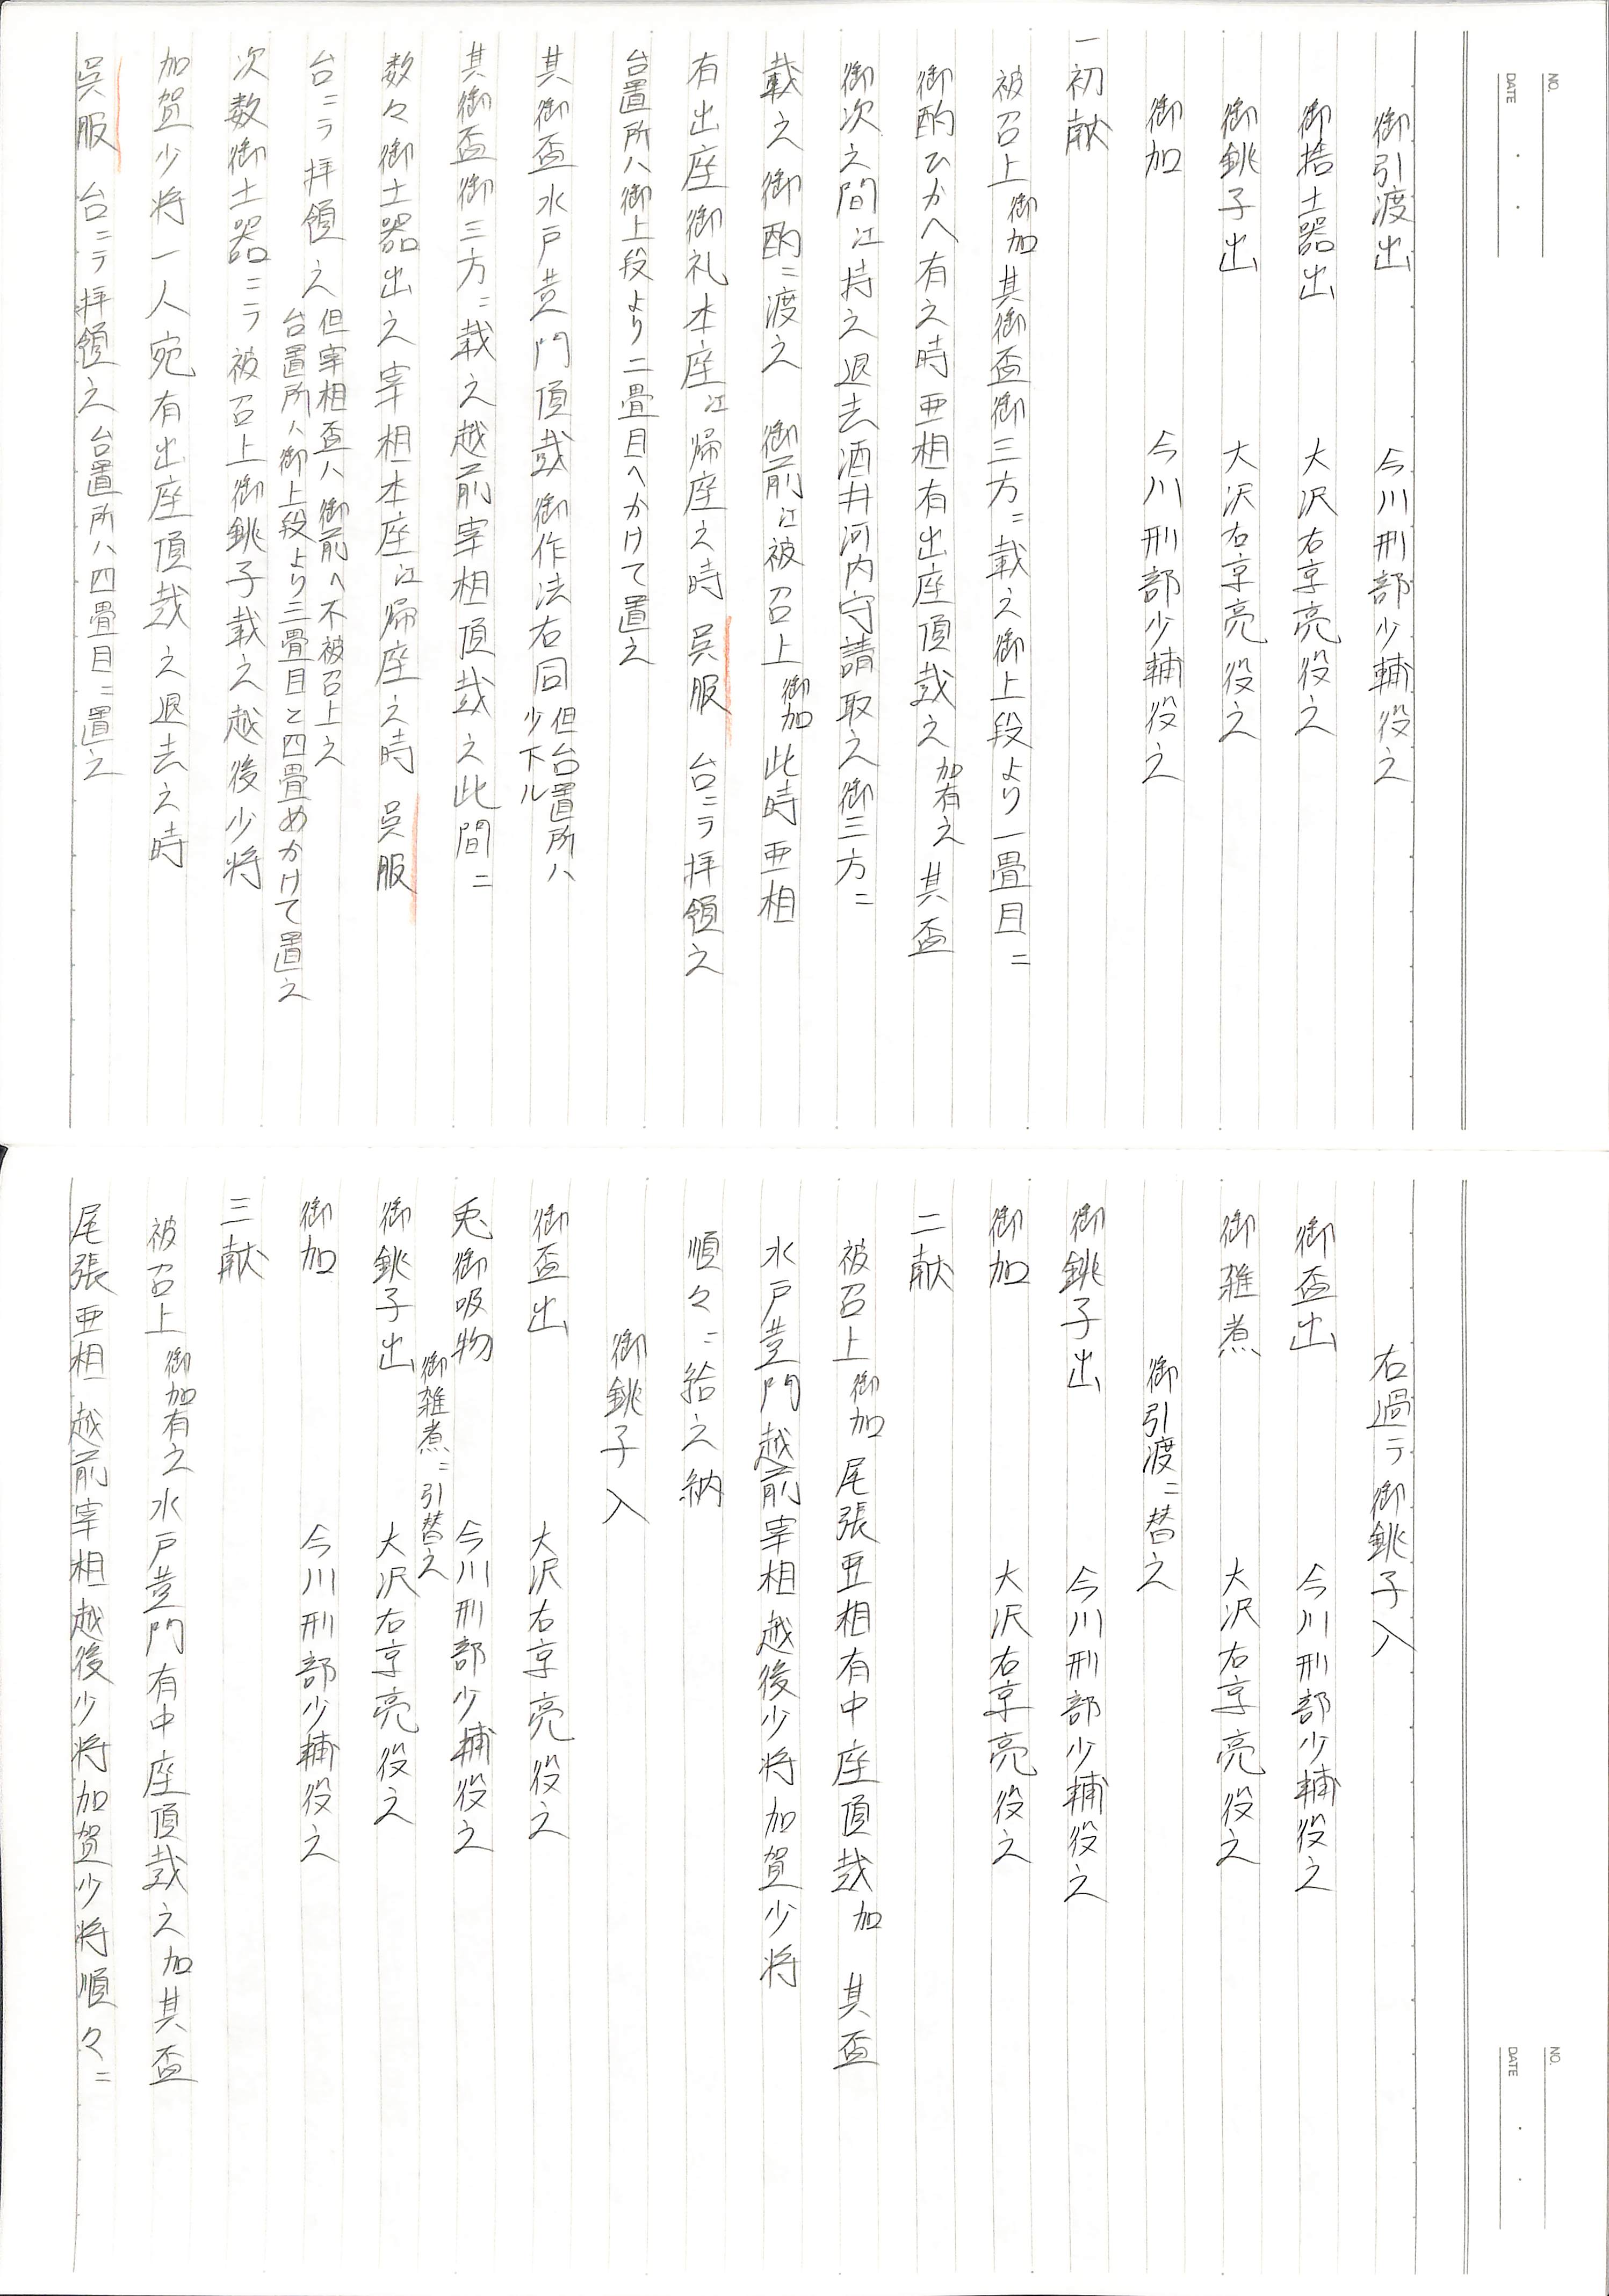 NO.
DATE
御引渡出　今川刑部少輔役之
御捨土器出　大沢右京亮役之
御銚子出　大沢右京亮役之
御加　今川刑部少輔役之
一初献
被召上 御加 其御盃御三方ニ載之御上段より一畳目ニ
御酌ひかへ有之時亜相有出座頂戴之 加有之 其盃
御次之間江持之退去酒井河内守請取之御三方ニ
載之御酌ニ渡之　御前江被召上 御加 此時亜相
有出座御礼本座江帰座之時 呉服 台ニテ拝領之
台置所ハ御上段より二畳目へかけて置之
其御盃水戸黄門頂戴御作法右同 但台置所ハ
少下ル
其御盃御三方ニ載之越前宰相頂戴之此間ニ
数々御土器出之宰相本座江帰座之時 呉服
台ニテ拝領之 但宰相盃ハ御前へ不被召上之
台置所ハ御上段より三畳目と四畳めかけて置之
次数御土器ニテ被召上御銚子載之越後少将
加賀少将一人宛有出座頂戴之退去之時
呉服 台ニテ拝領之 台置所ハ四畳目ニ置之
NO.
DATE
右過テ御銚子入
御盃出　今川刑部少輔役之
御雑煮　大沢右京亮役之
御引渡ニ替之
御銚子出　今川刑部少輔役之
御加　大沢右京亮役之
二献
被召上 御加 尾張亜相有中座頂戴 加 其盃
水戸黄門越前宰相越後少将加賀少将
順々ニ給之納
御銚子入
御盃出　大沢右京亮役之
兎御吸物　今川刑部少輔役之
御雑煮ニ引替之
御銚子出　大沢右京亮役之
御加　今川刑部少輔役之
三献
被召上 御加有之 水戸黄門有中座頂戴之 加 其盃
尾張亜相越前宰相越後少将加賀少将順々ニ